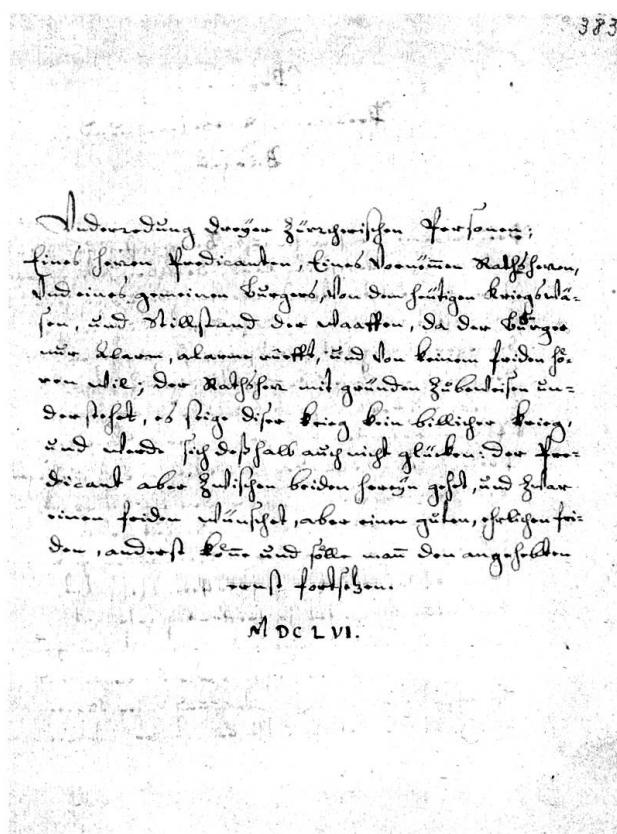 383
Underredung dreÿer Zürzcherischen Personen;
Eines herren Predicanten, Eines Vornem̄en Rathsherren,
Und eines gemeinen Burgers, Von dem heütigen kriegswä-
sen, und Stillstand der Waaffen, da der Burger
nur Alarm, alarme rüefft, und Von keinem friden hö-
ren wil; der Rathsherr mit gründen Zubeweisen un-
derstehet, es seige diser krieg kein billicher krieg,
und werde sich deßhalb auch nicht glücken: der Pre-
dicant aber Zwischen beiden hereÿn gehet, und Zwar
einen friden wünschet, aber einen guten, ehrlichen fri-
den, anderst kön̄e und sölle man̄ den angehebten
ernst fortsetzen.
MDCLVI.